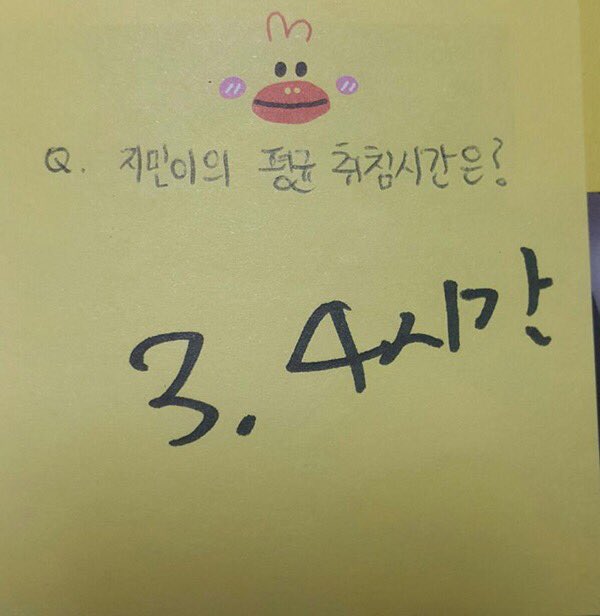 Q. 지민이의 평균 취침시간은?
3. 4시간